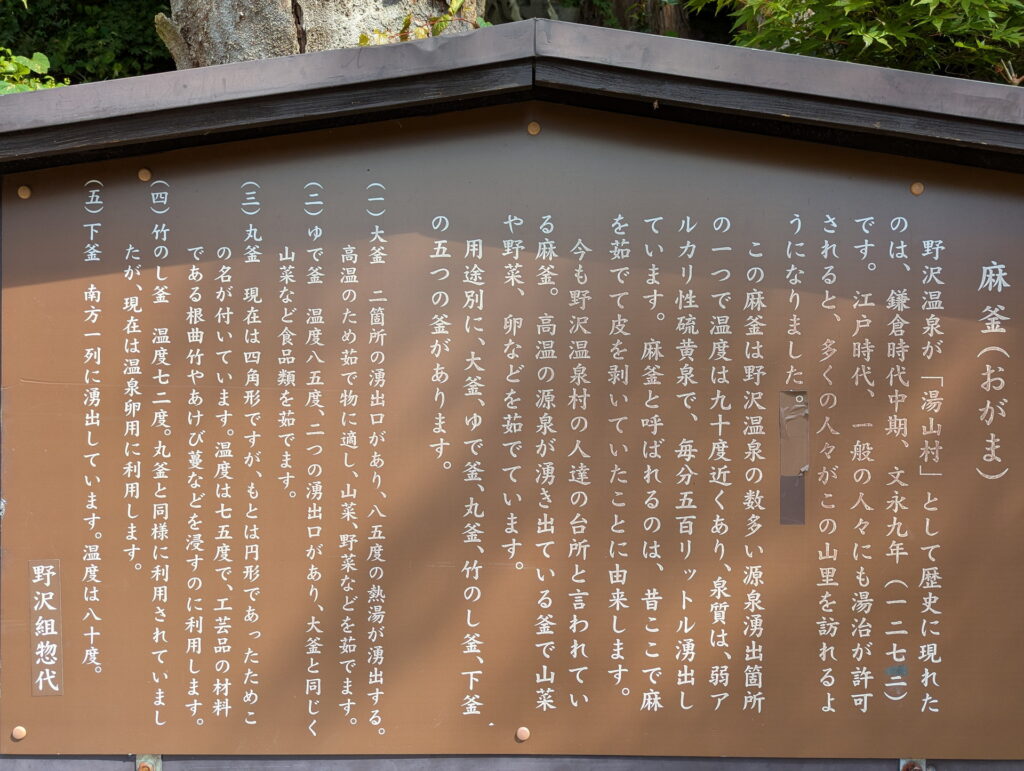 麻釜(おがま)
野沢温泉が「湯山村」として歴史に現れた
のは、鎌倉時代中期、文永九年(一二七二)
です。江戸時代、一般の人々にも湯治が許可
されると、多くの人々がこの山里を訪れるよ
うになりました
この麻釜は野沢温泉の数多い源泉湧出箇所
の一つで温度は九十度近くあり、泉質は、弱ア
ルカリ性硫黄泉で、毎分五百リットル湧出し
ています。麻釜と呼ばれるのは、昔ここで麻
を茹でて皮を剥いていたことに由来します。
今も野沢温泉村の人達の台所と言われてい
る麻釜。高温の源泉が湧き出ている釜で山菜
や野菜、卵などを茹でています。
用途別に、大釜、ゆで釜、丸釜、竹のし釜、下釜
の五つの釜があります。
(一)大釜 二箇所の湧出口があり、八五度の熱湯が湧出する。
高温のため茹で物に適し、山菜、野菜などを茹でます。
(二)ゆで釜 温度八五度、二つの湧出口があり、大釜と同じく
山菜など食品類を茹でます。
(三)丸釜 現在は四角形ですが、もとは円形であったためこ
の名が付いています。温度は七五度で、工芸品の材料
である根曲竹やあけび蔓などを浸すのに利用します。
(四)竹のし釜 温度七二度。丸釜と同様に利用されていまし
たが、現在は温泉卵用に利用します。
(五)下釜 南方一列に湧出しています。温度は八十度。
野沢組惣代